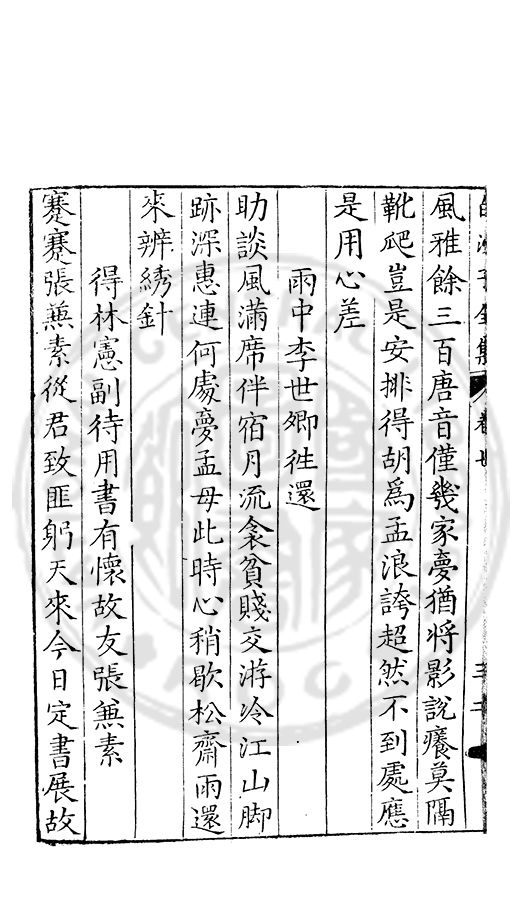 風雅餘三百唐音僅幾家夢猶將影說癢莫隔
靴爬豈是安排得胡爲孟浪誇超然不到處應
是用心差
雨中李世卿徃還
助談風滿席伴宿月流衾貧賤交游冷江山脚
跡深惠連何處夢孟母此時心稍歇松齋雨還
來辨綉針
得林憲副待用書有懷故友張蕪素
蹇蹇張蕪素從君致匪躬天來今日定書展故